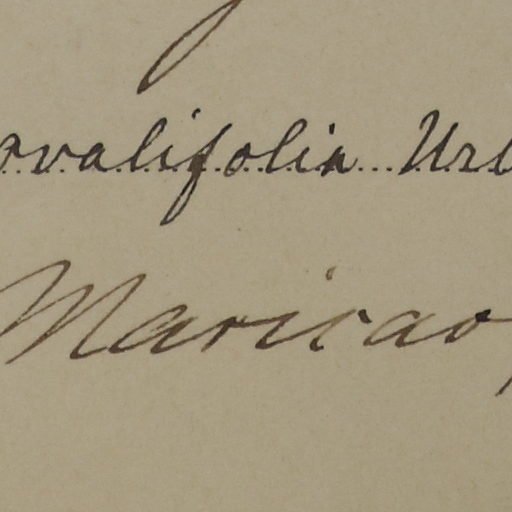 ovalifolia Ur
Maricao,